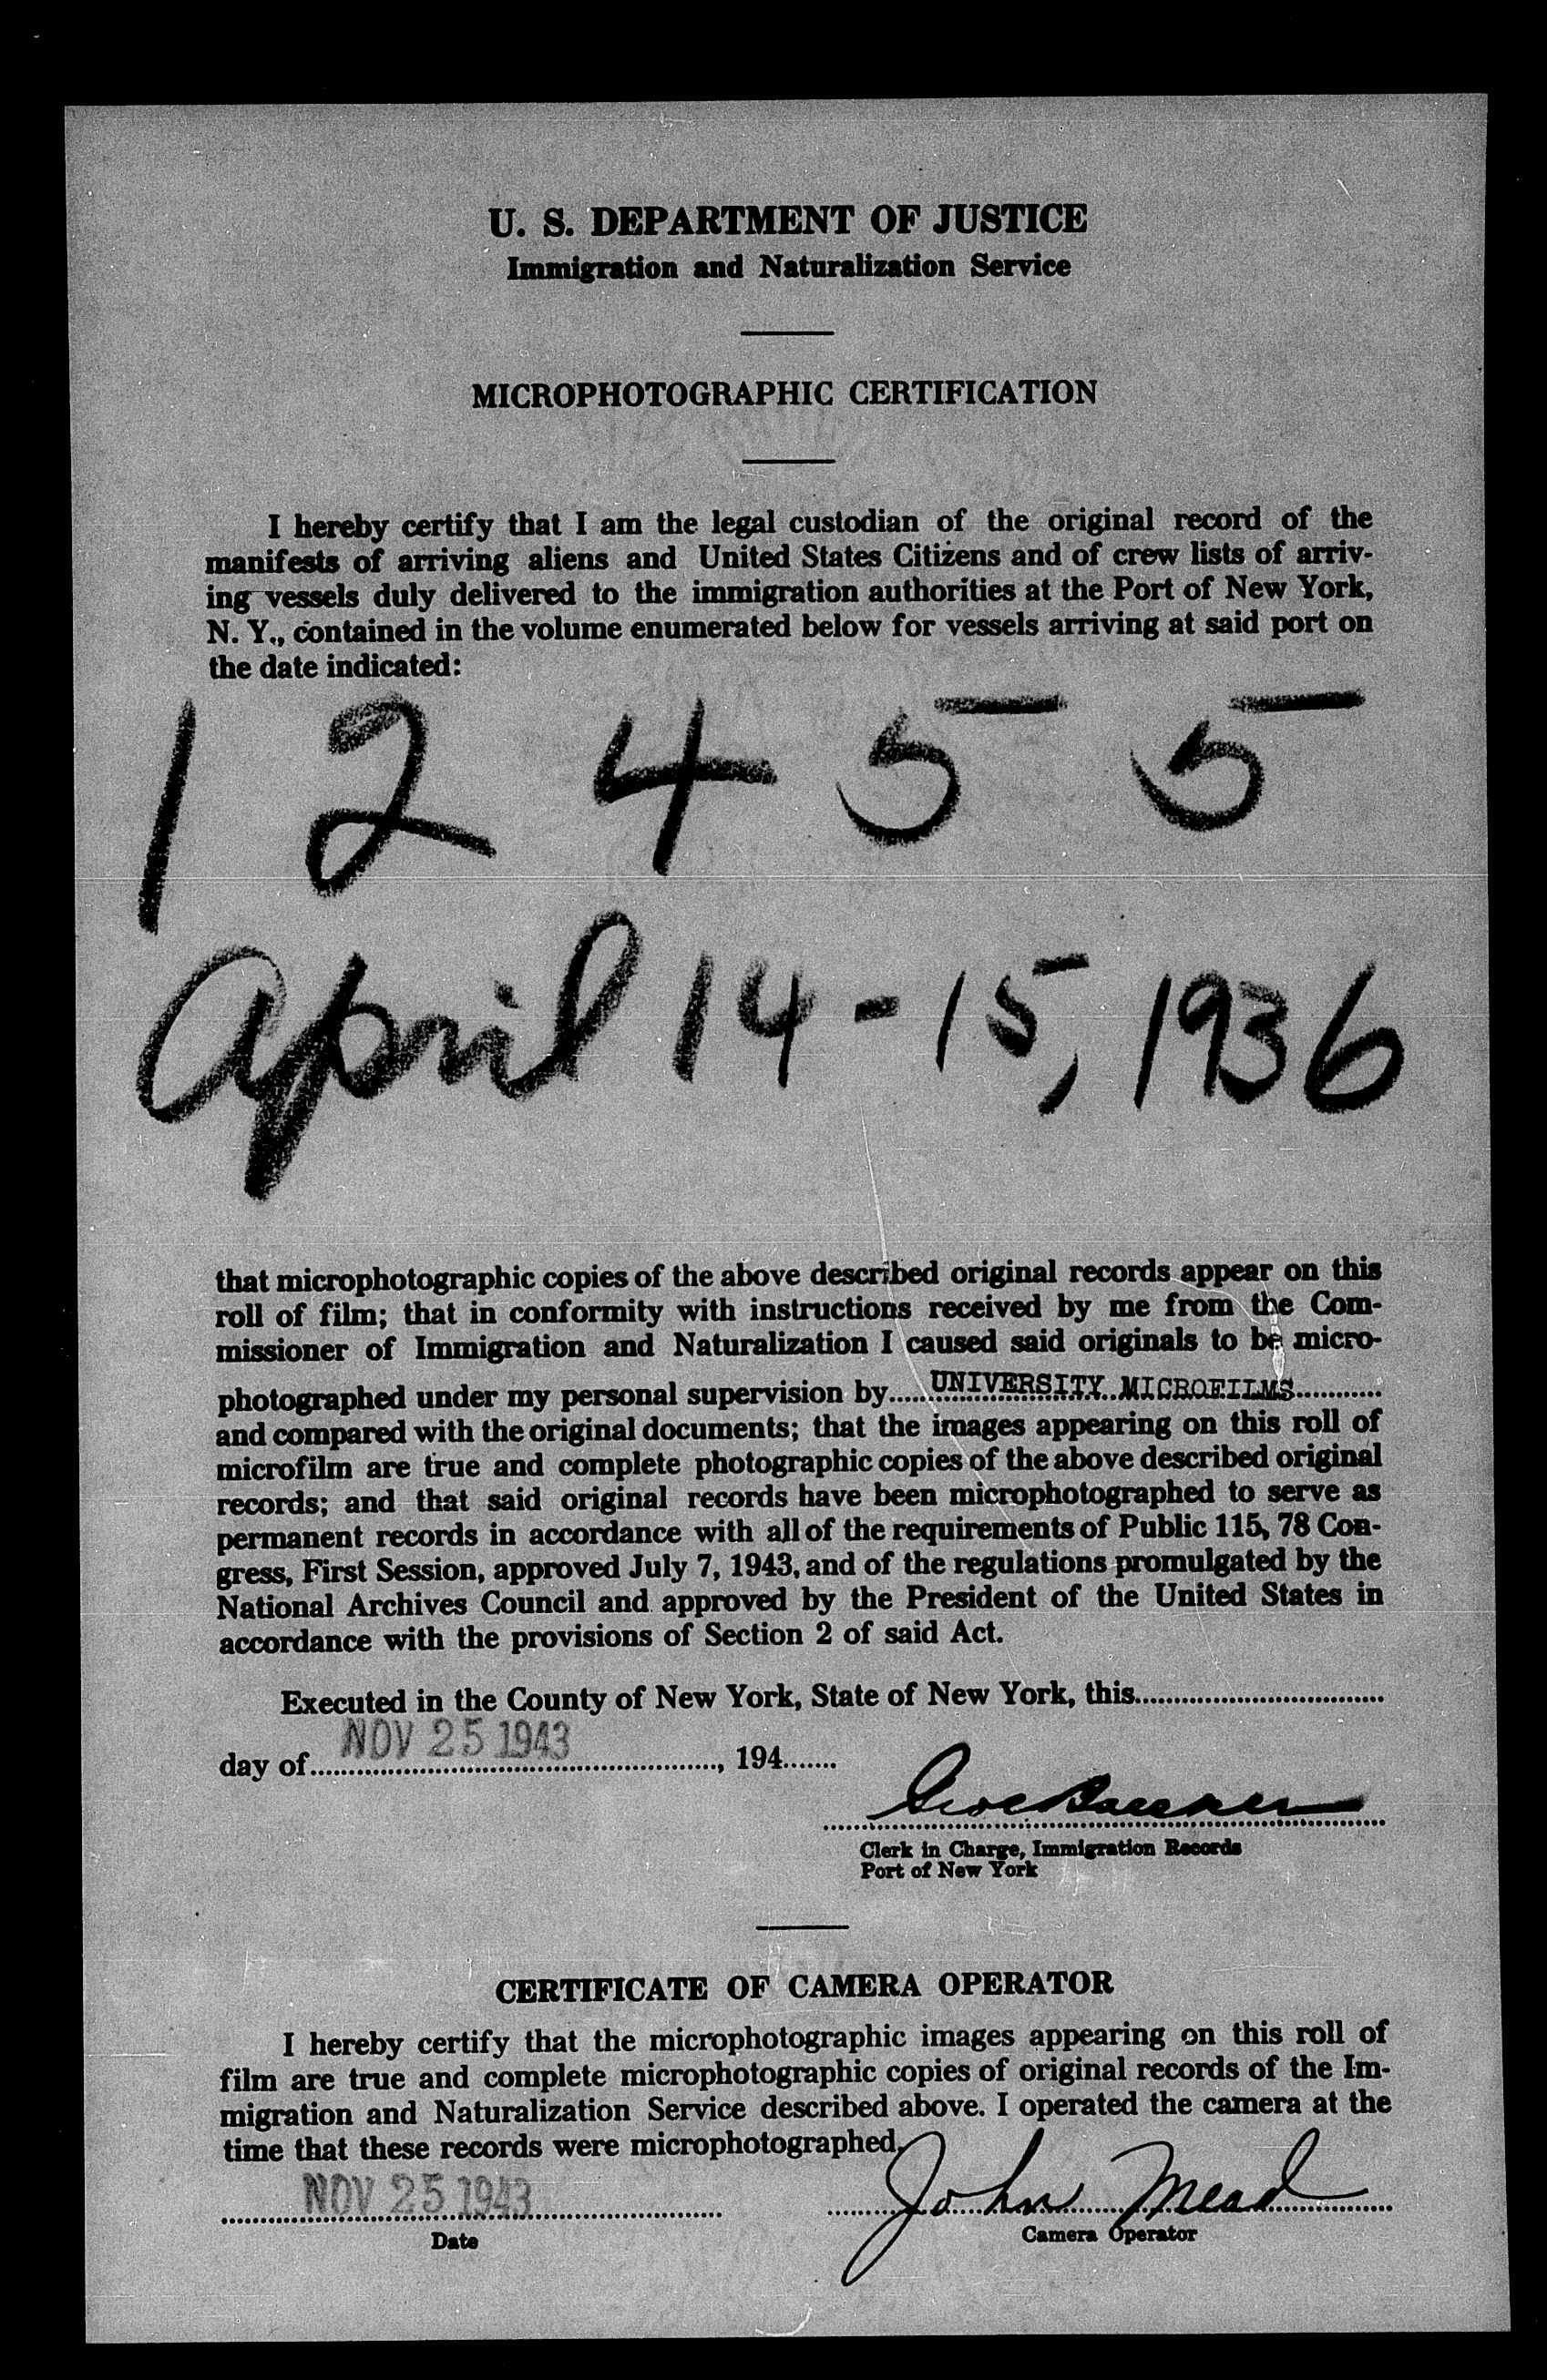 U. S. DEPARTMENT OF JUSTICE
Immigration and Naturalization Service
MICROPHOTOGRAPHIC CERTIFICATION
I hereby certify that I am the legal custodian of the original record of the
manifests of arriving aliens and United States Citizens and of crew lists of arriv-
ing vessels duly delivered to the immigration authorities at the Port of New York,
N. Y., contained in the volume enumerated below for vessels arriving at said port on
the date indicated:
1 2 4 5 5
April 14-15, 1936
that microphotographic copies of the above described original records appear on this
roll of film; that in conformity with instructions received by me from the Com-
missioner of Immigration and Naturalization I caused said originals to be micro-
photographed under my personal supervision by.....UNIVERSITY MICROFILMS............
and compared with the original documents; that the images appearing on this roll of
microfilm are true and complete photographic copies of the above described original
records; and that said original records have been microphotographed to serve as
permanent records in accordance with all of the requirements of Public 115, 78 Con-
gress, First Session, approved July 7, 1943, and of the regulations promulgated by the
National Archives Council and approved by the President of the United States in
accordance with the provisions of Section 2 of said Act.
Executed in the County of New York, State of New York, this................................
day of....NOV 25 1943...................., 194.......
Clerk in Charge, Immigration Records
Port of New York
CERTIFICATE OF CAMERA OPERATOR
I hereby certify that the microphotographic images appearing on this roll of
film are true and complete microphotographic copies of original records of the Im-
migration and Naturalization Service described above. I operated the camera at the
time that these records were microphotographed.
NOV 25 1943 John Mead
Date Camera Operator